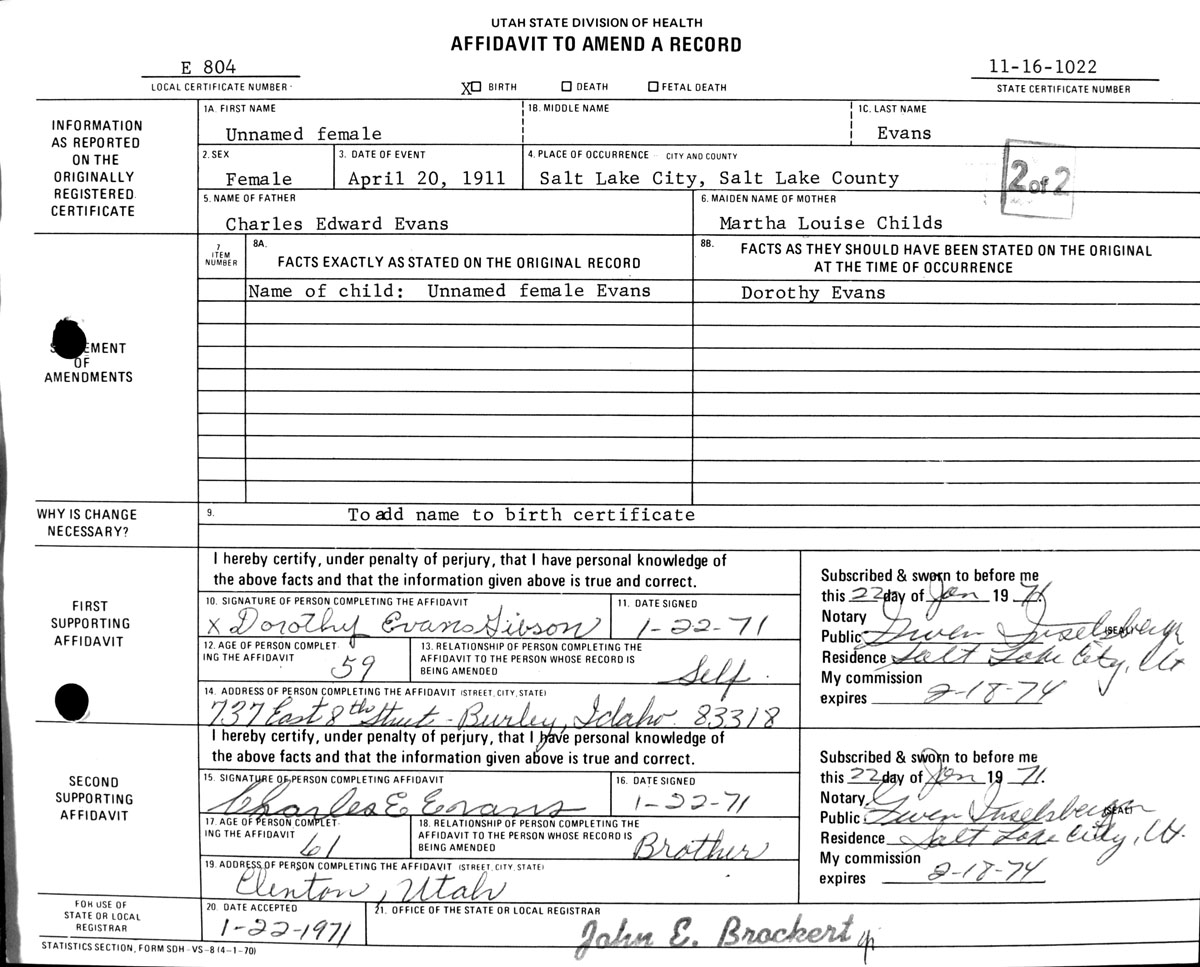 UTAH STATE DIVISION OF HEALTH
AFFIDAVIT TO AMEND A RECORD
E 804
11-16-1022
LOCAL CERTIFICATE NUMBER
X BIRTH DEATH FETAL DEATH
STATE CERTIFICATE NUMBER
INFORMATION
AS REPORTED
ON THE
ORIGINALLY
REGISTERED
CERTIFICATE
1A. FIRST NAME 1B. MIDDLE NAME 1C. LAST NAME
Unnamed female Evans
2. SEX 3. DATE OF EVENT 4. PLACE OF OCCURRENCE CITY AND COUNTY
Female April 20, 1911 Salt Lake City, Salt Lake County
2 of 2
5. NAME OF FATHER 6. MAIDEN NAME OF MOTHER
Charles Edward Evans Martha Louise Childs
7 ITEM NUMBER
8A. FACTS EXACTLY AS STATED ON THE ORIGINAL RECORD
8B. FACTS AS THEY SHOULD HAVE BEEN STATED ON THE ORIGINAL
AT THE TIME OF OCCURRENCE
Name of child: Unnamed female Evans Dorothy Evans
EMENT
OF
AMENDMENTS
WHY IS CHANGE
NECESSARY?
9. To add name to birth certificate
FIRST
SUPPORTING
AFFIDAVIT
I hereby certify, under penalty of perjury, that I have personal knowledge of
the above facts and that the information given above is true and correct.
10. SIGNATURE OF PERSON COMPLETING THE AFFIDAVIT 11. DATE SIGNED
X Dorothy Evans Gibson 1-22-71
12. AGE OF PERSON COMPLET-
ING THE AFFIDAVIT 59
13. RELATIONSHIP OF PERSON COMPLETING THE
AFFIDAVIT TO THE PERSON WHOSE RECORD IS
BEING AMENDED Self.
14. ADDRESS OF PERSON COMPLETING THE AFFIDAVIT (STREET, CITY, STATE)
737 East 8th Street - Burley, Idaho. 83318
Subscribed & sworn to before me
this 22 day of Jan 19 71
Notary
Public Gwen Inselsberger (SEAL)
Residence Salt Lake City, Ut
My commission
expires 2-18-74
SECOND
SUPPORTING
AFFIDAVIT
I hereby certify, under penalty of perjury, that I have personal knowledge of
the above facts and that the information given above is true and correct.
15. SIGNATURE OF PERSON COMPLETING AFFIDAVIT 16. DATE SIGNED
Charles E Evans 1-22-71
17. AGE OF PERSON COMPLET-
ING THE AFFIDAVIT 61
18. RELATIONSHIP OF PERSON COMPLETING THE
AFFIDAVIT TO THE PERSON WHOSE RECORD IS
BEING AMENDED Brother
19. ADDRESS OF PERSON COMPLETING THE AFFIDAVIT (STREET, CITY, STATE)
Clinton, Utah
Subscribed & sworn to before me
this 22 day of Jan 19 71.
Notary
Public Gwen Inselsberger (SEAL)
Residence Salt Lake City, Ut.
My commission
expires 2-18-74
FOR USE OF
STATE OR LOCAL
REGISTRAR
20. DATE ACCEPTED 21. OFFICE OF THE STATE OR LOCAL REGISTRAR
1-22-1971 John E. Brockert
STATISTICS SECTION, FORM SDH-VS-8 (4-1-70)